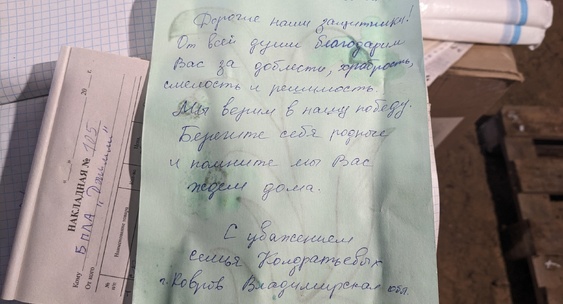 Дорогие наши защитники!
От всей души благодарим
Вас за доблесть, храбрость,
смелость и решимость.
Мы верим в нашу победу.
Берегите себя родные
и помните мы Вас
ждём дома.
С уважением
семья Кондратьевых
г. Ковров Владимирская обл.
НАКЛАДНАЯ № 125
20 г.
Кому БПЛА
От кого
Наименование
№
п/п